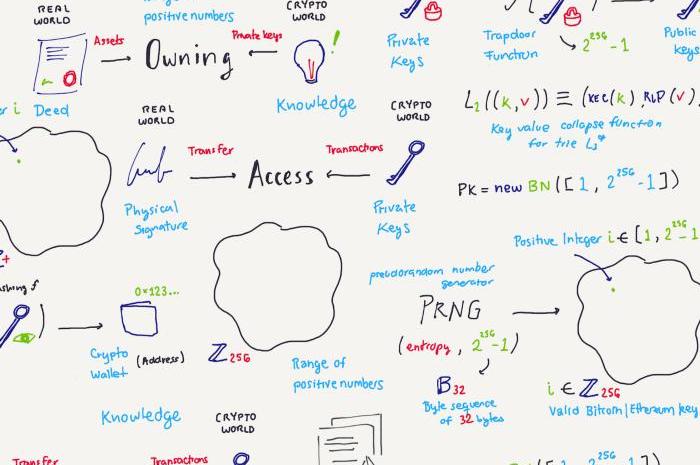 Range of
positive numbers
CRYPTO
WORLD
REAL
WORLD
Assets
Owning
Private keys
!
Private
Keys
Trapdoor
Function
2^256 - 1
Public
Keys
Deed
REAL
WORLD
Knowledge
CRYPTO
WORLD
L₂((k,v)) ≡ (KEC(k), RLP(v),
Key value collapse function
for trie L₃*
Transfer
Access
Transactions
Physical
Signature
Private
Keys
PK = new BN([1, 2^256 - 1])
Positive Integer i ∈ [1, 2^256 - 1
pseudorandom number
generator
PRNG
(entropy, 2^256 - 1)
0x123...
Crypto
Wallet
(Address)
ℤ256
Range of
positive numbers
𝔹32
Byte sequence
of 32 bytes
i ∈ ℤ256
Valid Bitcoin | Ethereum key
Knowledge
CRYPTO
WORLD
Transfer
Transactions